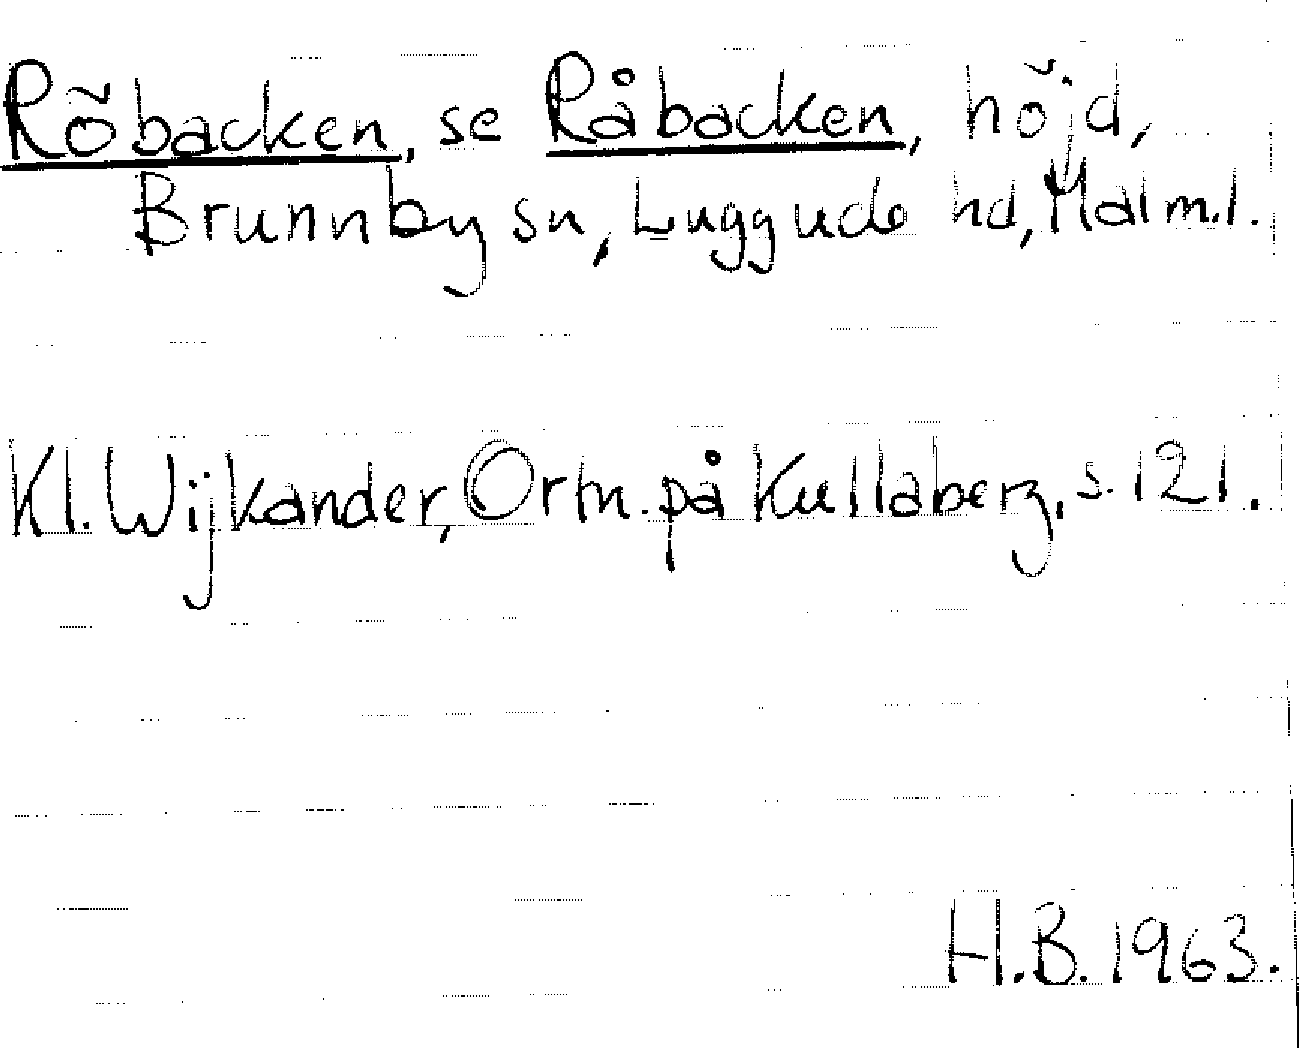 Röbacken, se Råbacken, höjd,
Brunnby sn, Luggude hd, Malm.l.
Kl. Wijkander, Ortn. på Kullaberg, s. 121.
H.B. 1963.